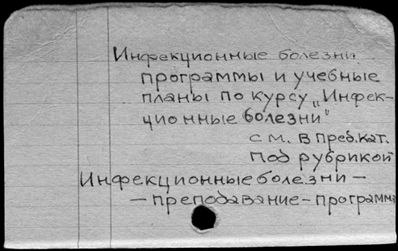 Инфекционные болезни
программы и учебные
планы по курсу „Инфек-
ционные болезни"
см. в Пред.кат.
под рубрикой
Инфекционные болезни —
— преподавание — программы